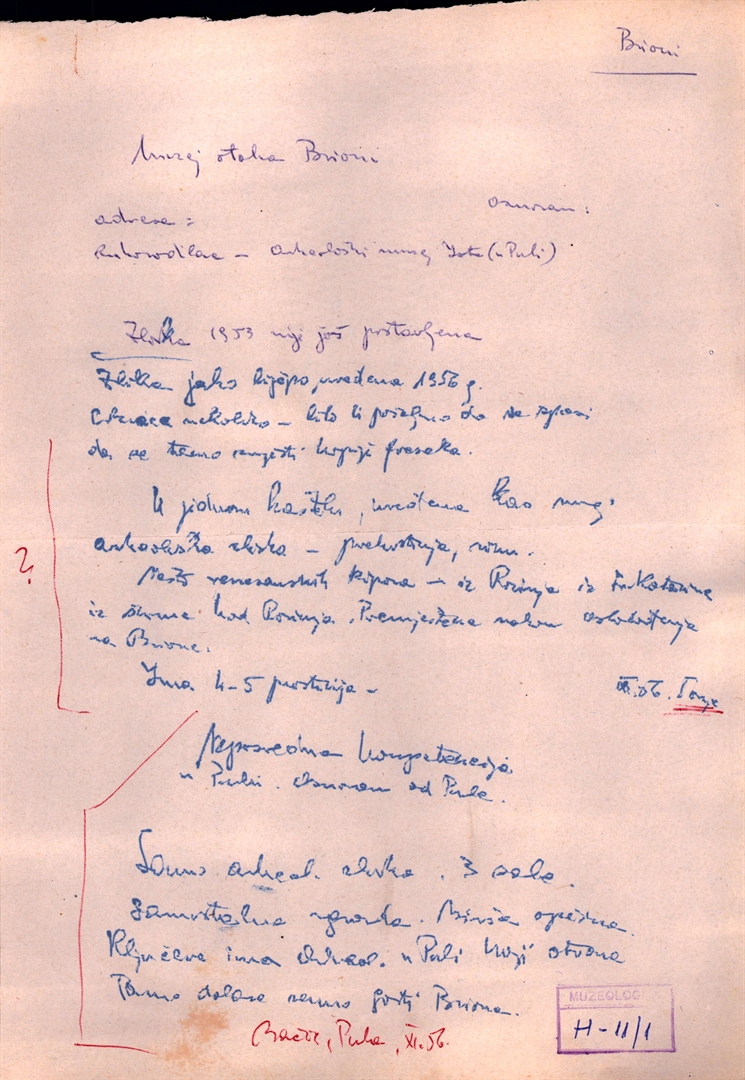 Brioni
Muzej otoka Brioni
osnovan:
adresa:
Rukovodilac - Arheološki muzej Istre (u Puli)
Zbirka 1953 nije još postavljena
Zbirka jako lijepo uređena 1956 g.
nekoliko - bilo bi poželjno da se spasi
da se tamo smjesti kopije fresaka.
U jednom kaštelu, uređena kao muzej
arheološka zbirka - prehistorija, rimn.
Nešto renesansnih kipova - iz Rovinja iz
iz kod Rovinja. Premještena nakon oslobođenja
na Brione.
Ima 4-5 prostorija -
XI.56.
Neposredna kompetencija
u Puli. Osnovan od Pule.
Samo arheol. zbirka. 3 sale.
Samostalna zgrada. Bivša općina.
Ključeve ima Arheol. u Puli koji otvara
Tamo dolaze samo gosti Briona.
Bačić, Pula, XI.56.
MUZEOLOG
H-11/1